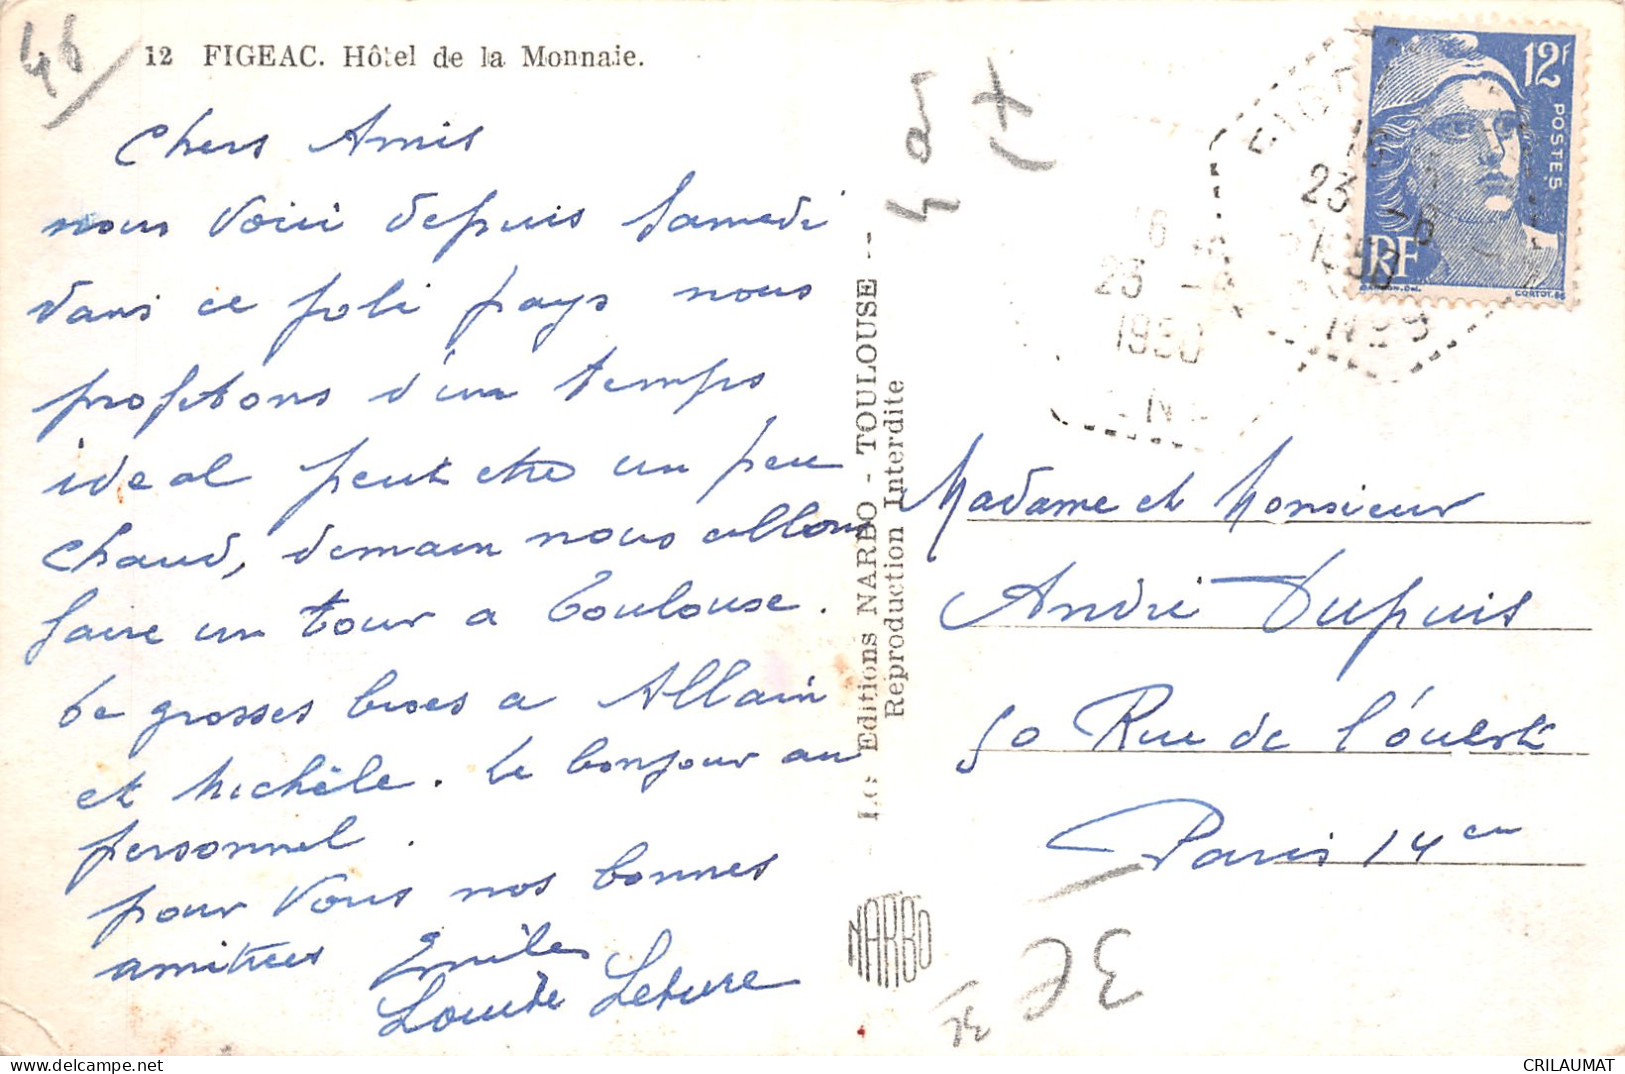 46
12 FIGEAC. Hôtel de la Monnaie.
Chers Amis
nous voici depuis samedi
dans ce joli pays nous
profitons d'un temps
ideal peut etre un peu
chaud, demain nous allons
faire un tour a Toulouse.
de grosses bises a Allain
et Michèle. le bonjour au
personnel.
pour vous nos bonnes
amitiees Emile
Louise Leture
Les Editions NARBO - TOULOUSE --
Reproduction Interdite
NARBO
12F
POSTES
RF
CORTOT.
16
23 -6
1950
16
23 -6
1950
Madame et Monsieur
André Dupuis
50 Rue de l'ouest
Paris 14em
3€
CRILAUMAT